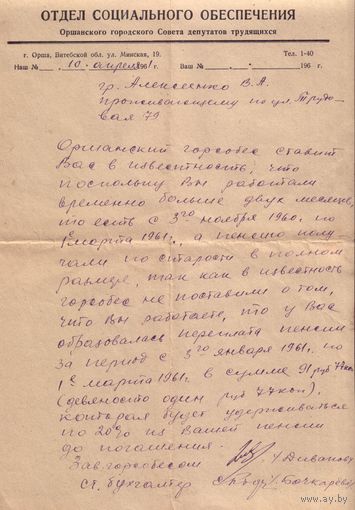 ОТДЕЛ СОЦИАЛЬНОГО ОБЕСПЕЧЕНИЯ
Оршанского городского Совета депутатов трудящихся
г. Орша, Витебской обл. ул. Минская, 19. Тел. 1-40
Наш № 10 апреля 1961 г. Ваш № 196 г.
гр. Алексеенко В. А.
проживающему по ул. Трудо-
вая 79
Оршанский горсобес ставит
Вас в известность, что
поскольку Вы работали
временно больше двух месяцев,
то есть с 3го ноября 1960г. по
1е марта 1961г., а пенсию полу
чали по старости в полном
размере, так как в известность
горсобес не поставили о том,
что Вы работаете, то у Вас
образовалась переплата пенсии
за период с 3го января 1961г. по
1е марта 1961г. в сумме 91 руб 77 коп
(девяносто один руб 77 коп),
которая будет удерживаться
по 20% из Вашей пенсии
до погашения.
Зав. горсобесом /Диванов/
Ст. бухгалтер /Бочкарева/
www.ay.by